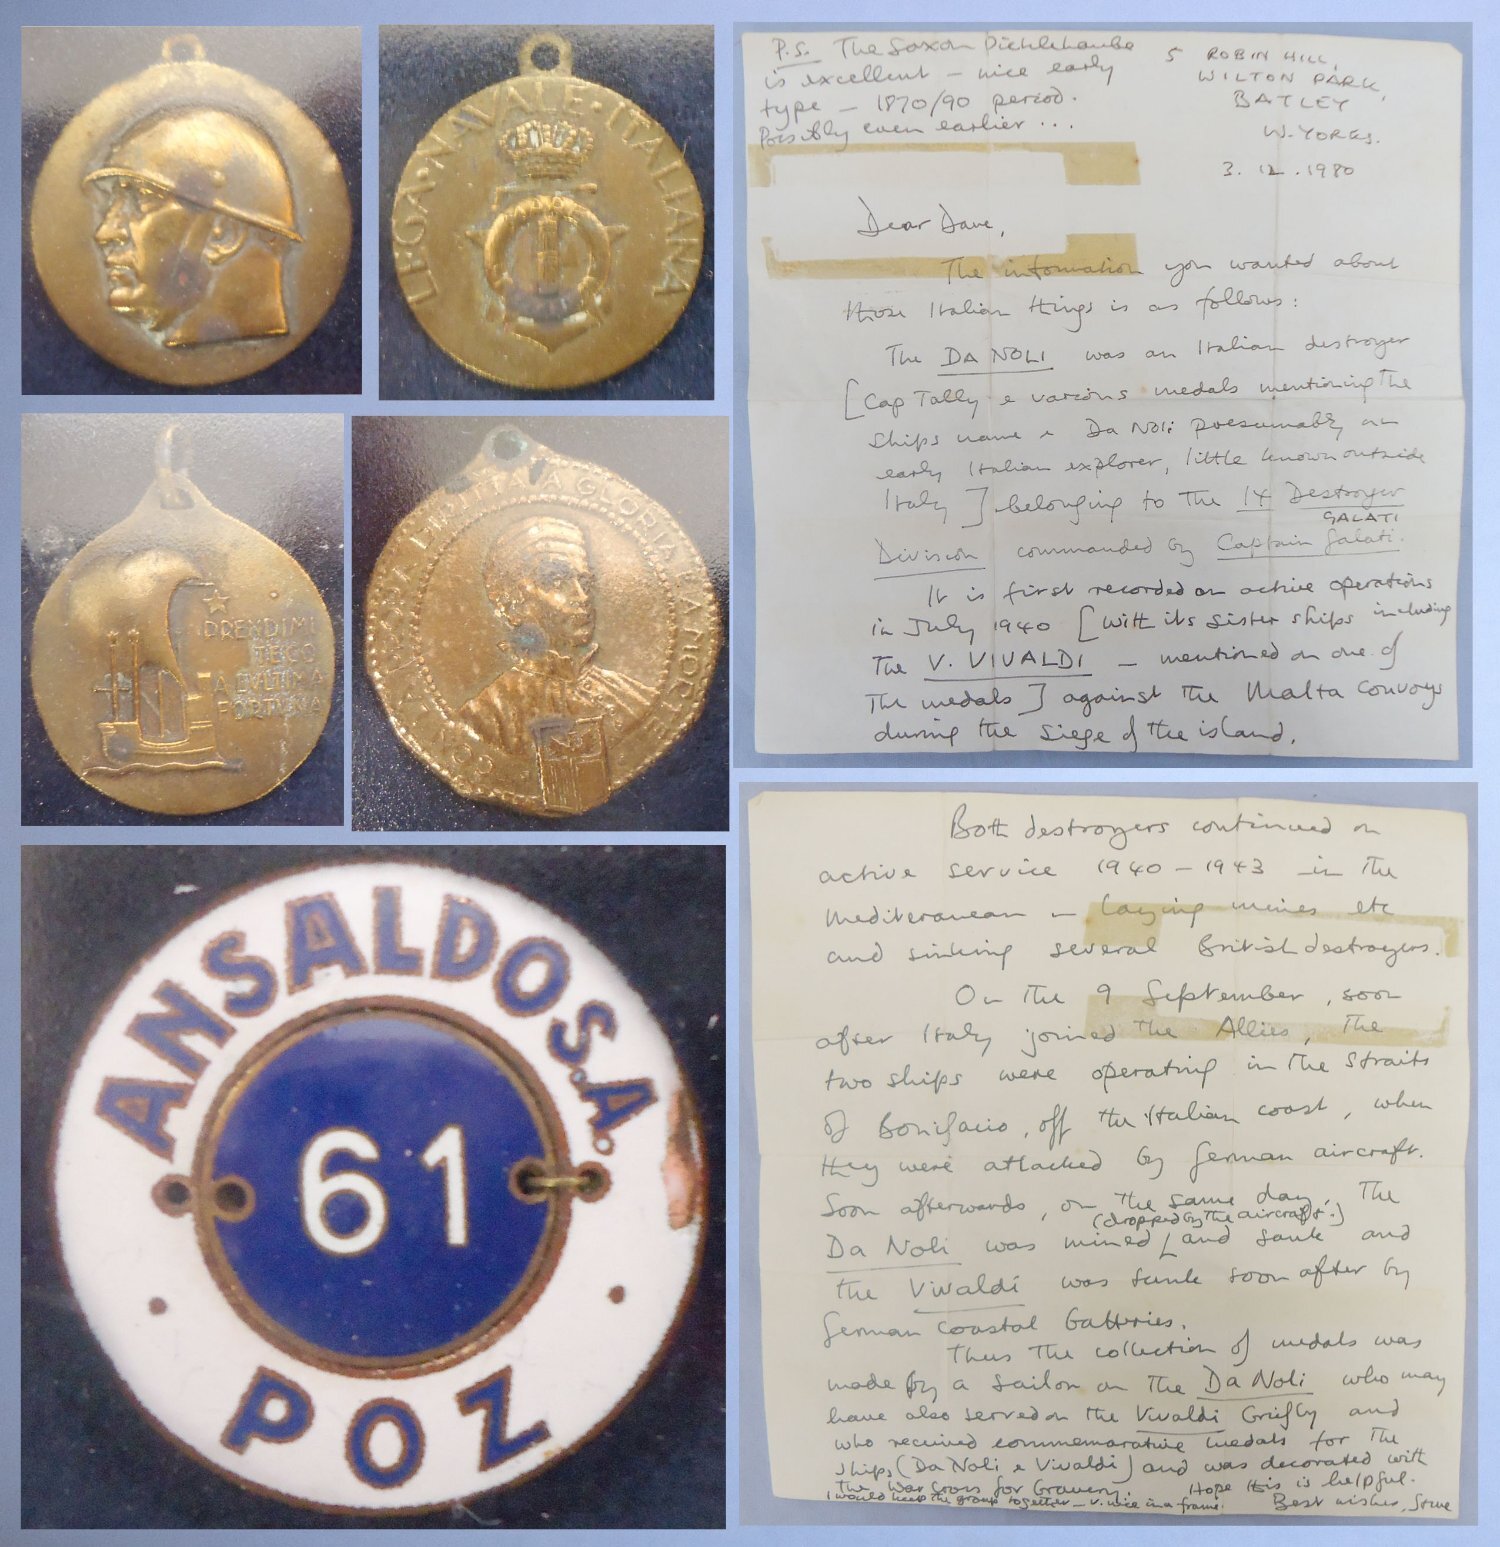 LEGA·NAVALE·ITALIANA
PRENDIMI
TECO
A L'VLTIMA
FORTVNA
ALLA GLORIA E A MORTE CON
ANSALDO S.A.
61
POZ
P.S. The Saxon Pickelhaube
is excellent - nice early
type - 1870/90 period.
Possibly even earlier ...
5 ROBIN HILL,
WILTON PARK,
BATLEY
W. YORKS.
3. 12. 1980
Dear Dave,
The information you wanted about
those Italian things is as follows:
The DA NOLI was an Italian destroyer
[Cap Tally & various medals mentioning the
ships name & Da Noli presumably an
early Italian explorer, little known outside
Italy] belonging to the 14 Destroyer
GALATI
Division commanded by Captain Galati.
It is first recorded on active operations
in July 1940 [with its sister ships including
the V. VIVALDI - mentioned on one of
the medals] against the Malta Convoys
during the siege of the island.
Both destroyers continued on
active service 1940 - 1943 in the
Mediteranean - laying mines etc
and sinking several British destroyers.
On the 9 September, soon
after Italy joined the Allies, the
two ships were operating in the straits
of Bonifacio, off the Italian coast, when
they were attacked by German aircraft.
Soon afterwards, on the same day, the
(dropped by the aircraft.)
Da Noli was mined [and sank and
the Vivaldi was sunk soon after by
German coastal batteries.
Thus the collection of medals was
made by a sailor on the Da Noli who may
have also served on the Vivaldi briefly and
who received commemorative medals for the
ships (Da Noli & Vivaldi) and was decorated with
the War Cross for bravery. Hope this is helpful.
I would keep the group together - v. nice in a frame. Best wishes, Steve